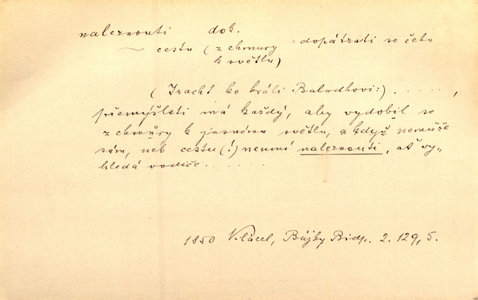 naleznouti dok.
~ cestu (z chmury = dopátrati se čeho
k světlu)
(Tracht ke králi Baladhovi:) . . . . . ,
přemýšleti má každý, aby vydobil se
z chmůry k jasnému světlu, a když nemůže
sám, neb cestu (!) neumí naleznouti, ať vy-
hledá vodiče. . . . . .
1850 Bájky Bidp. 2. 129, 5.